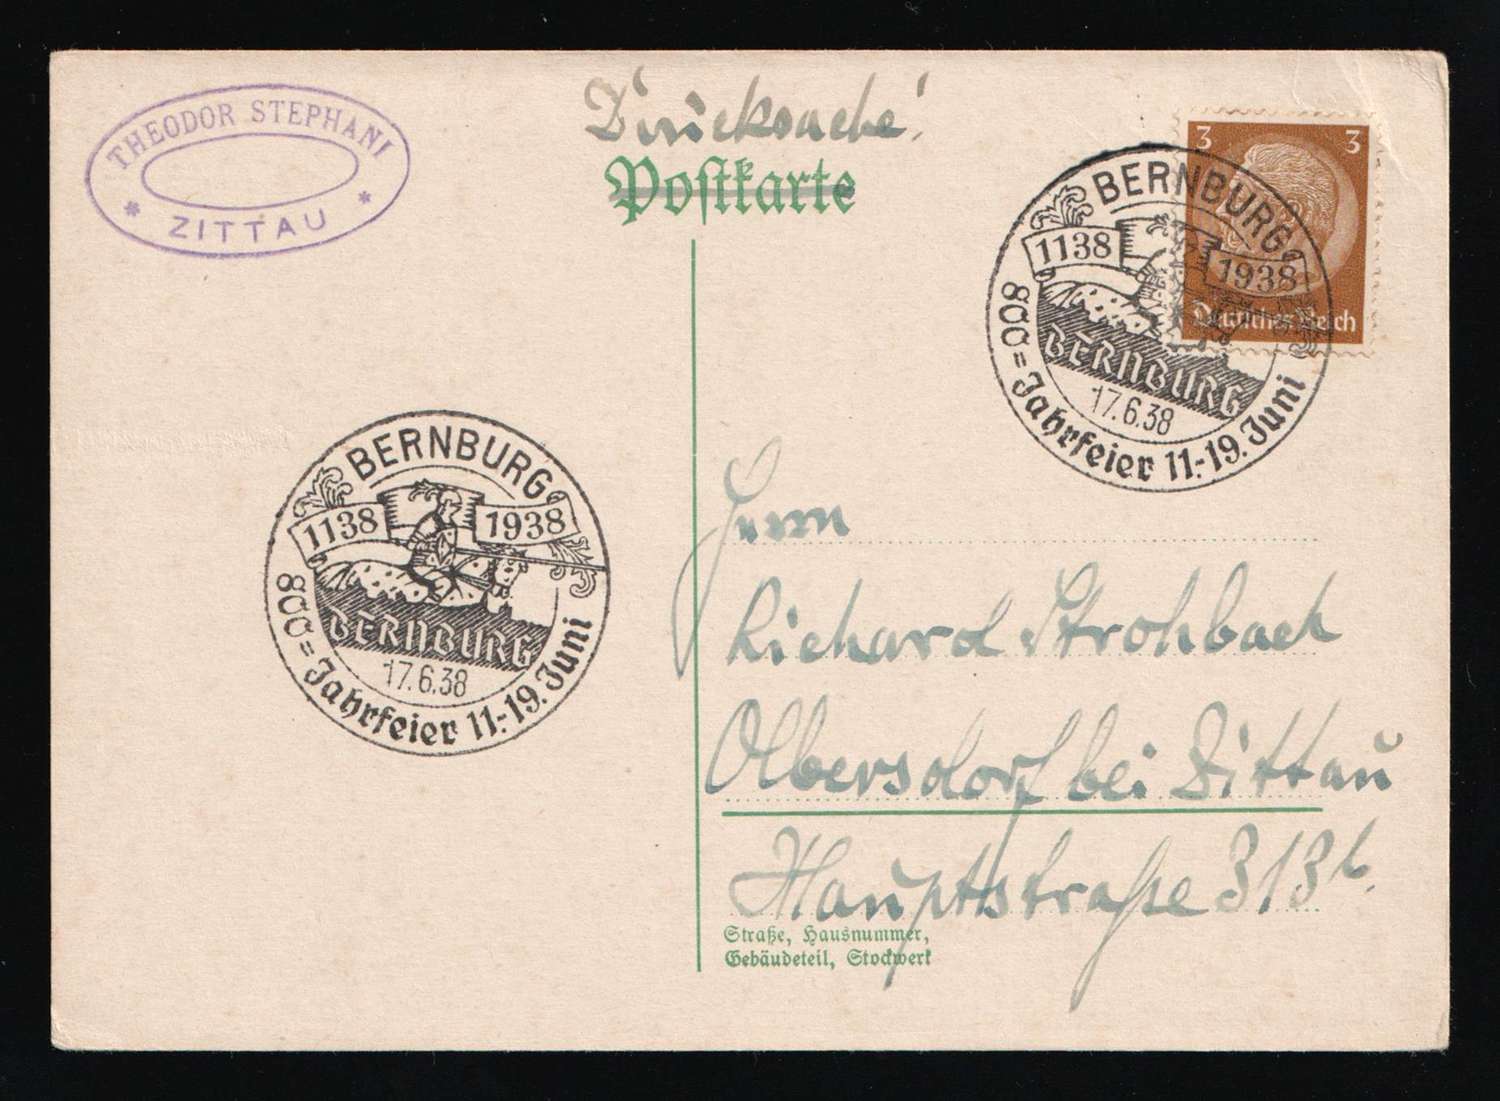 THEODOR STEPHANI
* ZITTAU *
Drucksache!
Postkarte
3 3
Deutsches Reich
BERNBURG
1138 1938
BERNBURG
17.6.38
800=Jahrfeier 11.-19. Juni
BERNBURG
1138 1938
BERNBURG
17.6.38
800=Jahrfeier 11.-19. Juni
Herrn
Richard Strohbach
Olbersdorf bei Zittau
Hauptstraße 313b.
Straße, Hausnummer,
Gebäudeteil, Stockwerk